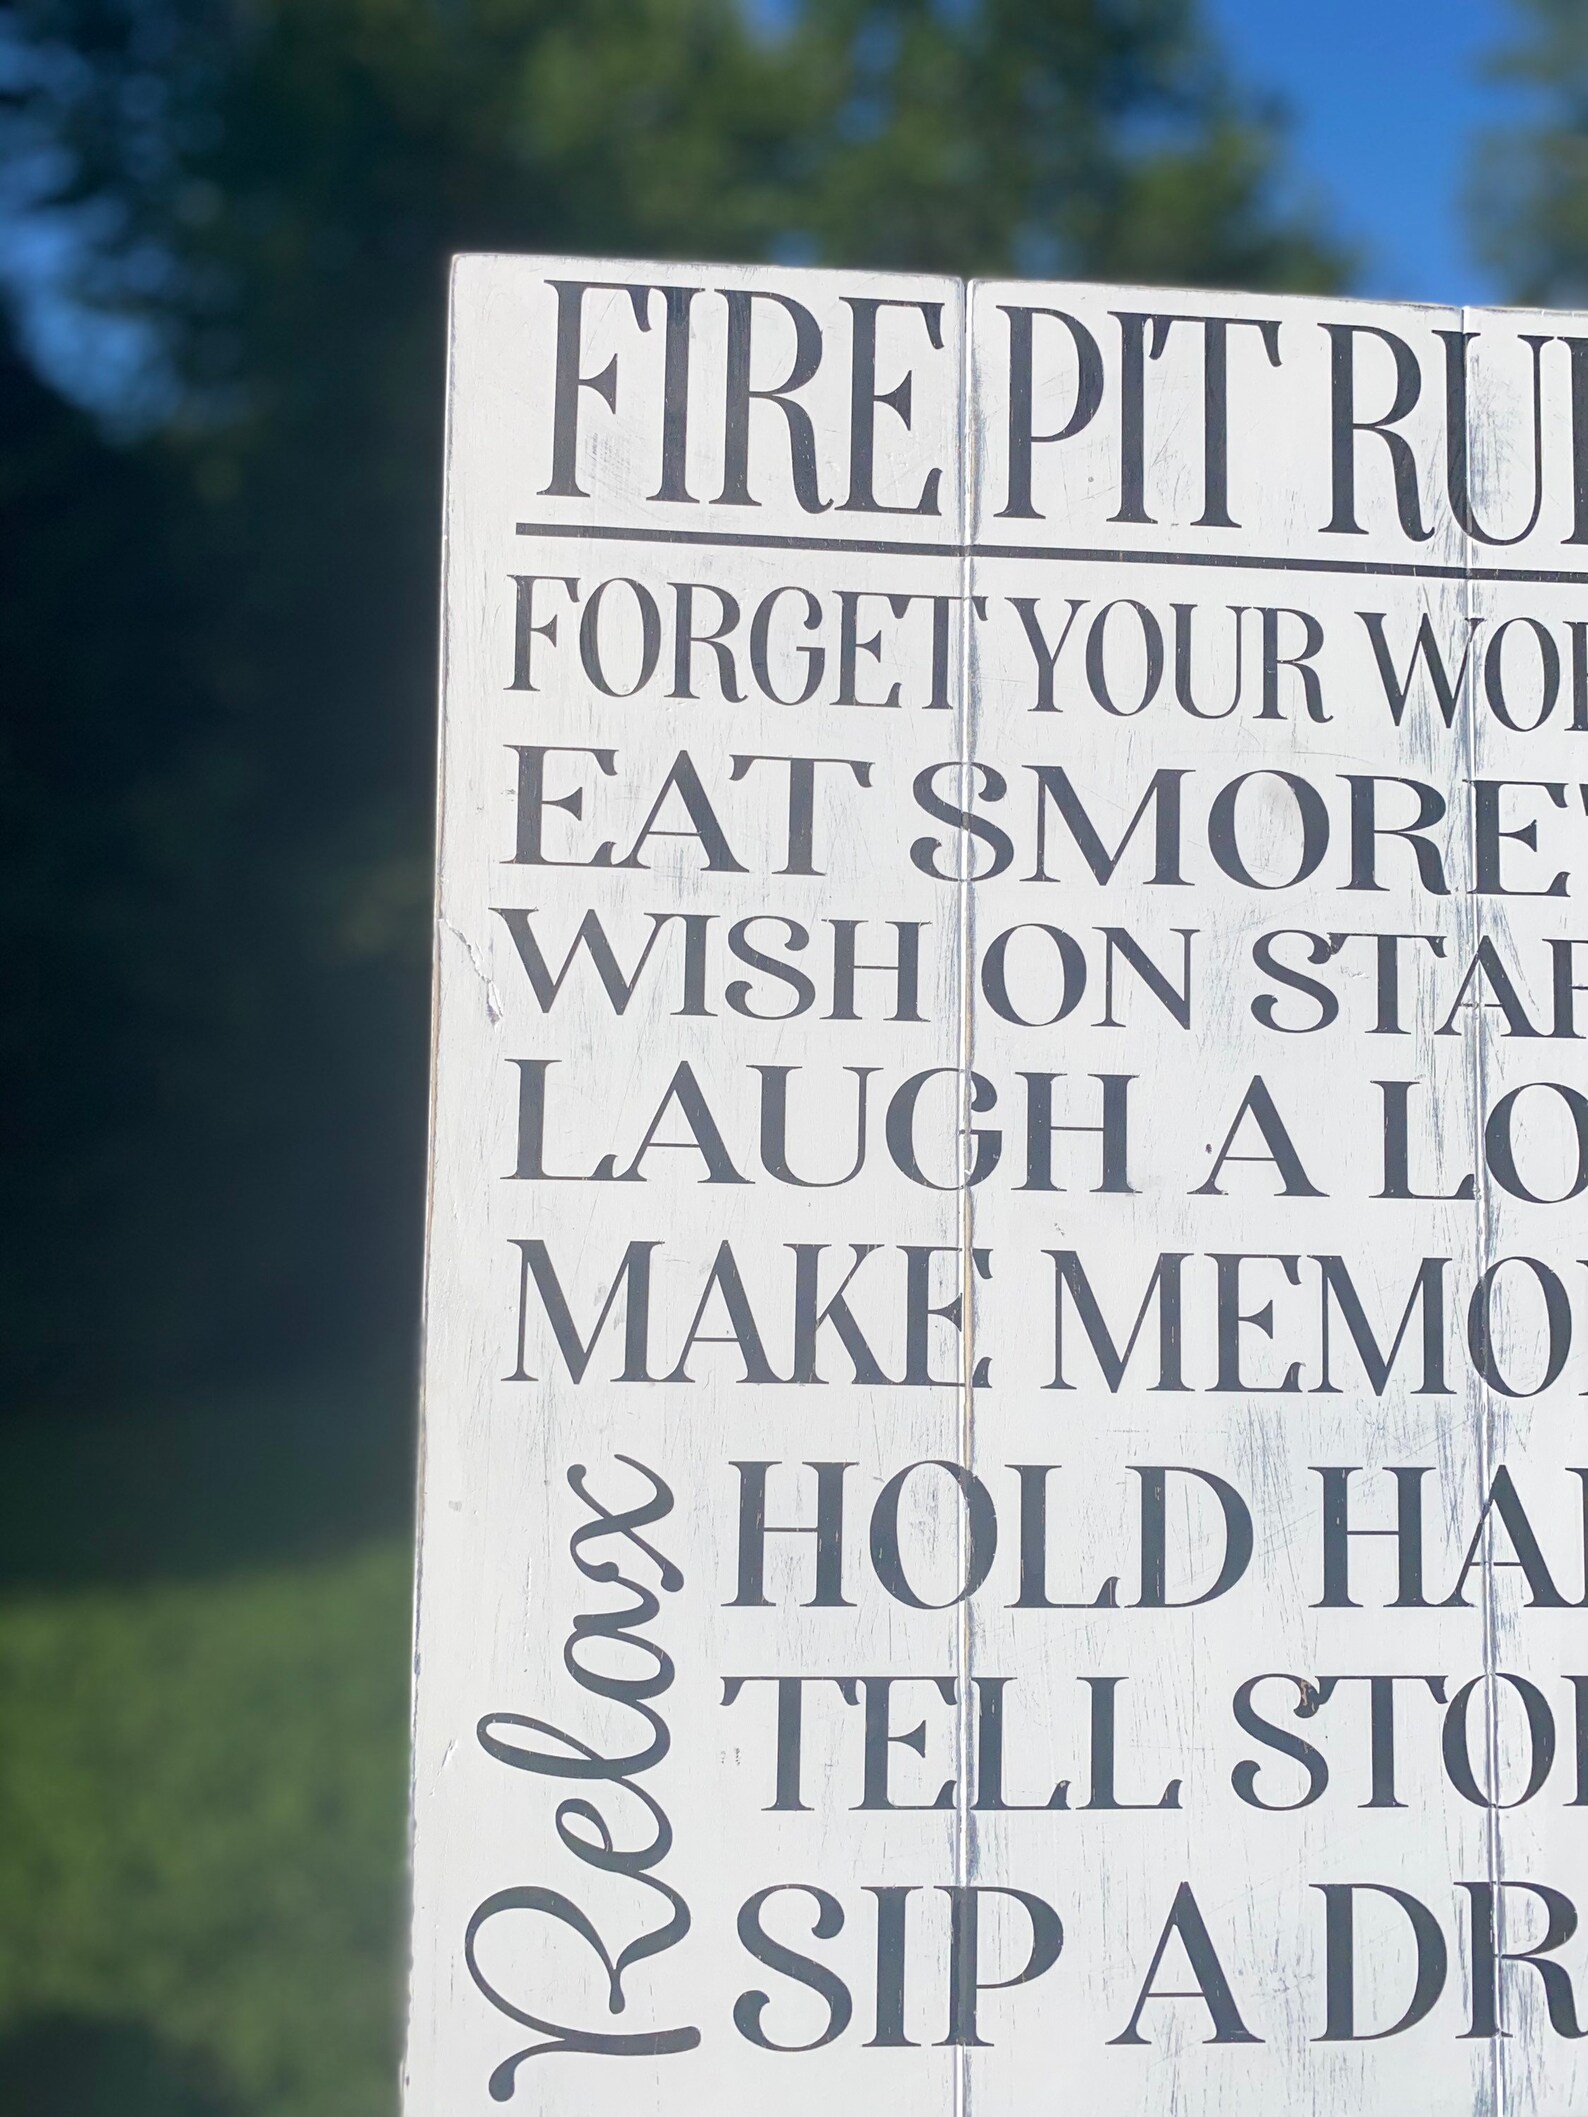 FIRE PIT RU
FORGET YOUR WOR
EAT SMORE'
WISH ON STAR
LAUGH A LO
MAKE MEMO
Relax
HOLD HA
TELL STO
SIP A DR